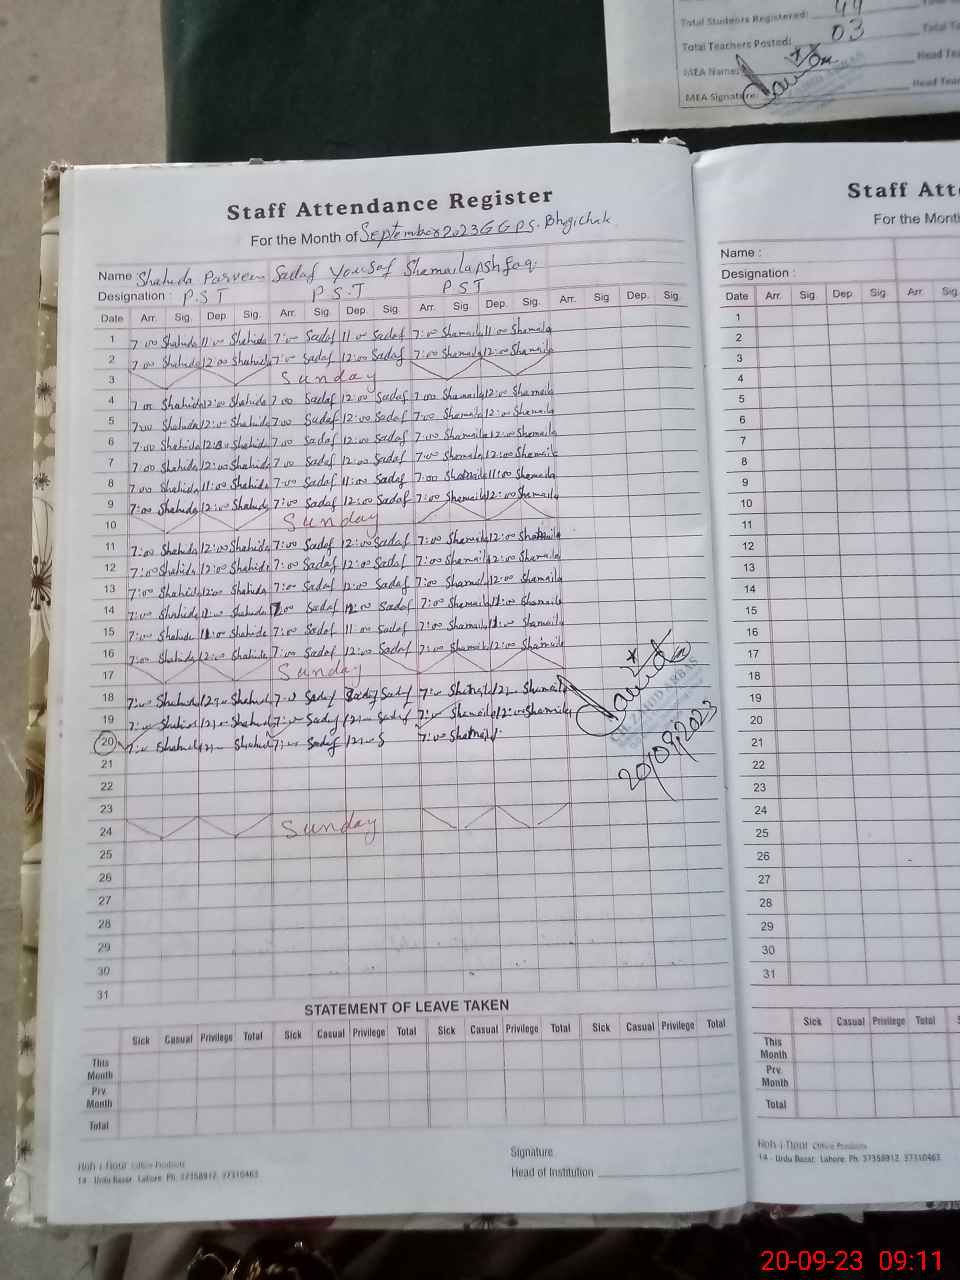 Total Students Registered: 44
Total Teachers Posted: 03
MEA Name: Head Tea
MEA Signature: Head Tea
Staff Attendance Register
For the Month of September 2023 GGPS. Bhgichak
Name : Shahida Parveen Sadaf Yousaf Shemaila Ashfaq.
Designation : P.S.T P.S.T P.S.T
Date Arr. Sig. Dep. Sig. Arr. Sig. Dep. Sig. Arr. Sig. Dep. Sig. Arr. Sig. Dep. Sig.
1 7:00 Shahida 11:00 Shahida 7:00 Sadaf 11:00 Sadaf 7:00 Shamaila 11:00 Shamaila
2 7:00 Shahida 12:00 Shahida 7:00 Sadaf 12:00 Sadaf 7:00 Shamaila 12:00 Shamaila
3 Sunday
4 7:00 Shahida 12:00 Shahida 7:00 Sadaf 12:00 Sadaf 7:00 Shamaila 12:00 Shamaila
5 7:00 Shahida 12:00 Shahida 7:00 Sadaf 12:00 Sadaf 7:00 Shamaila 12:00 Shamaila
6 7:00 Shahida 12:00 Shahida 7:00 Sadaf 12:00 Sadaf 7:00 Shamaila 12:00 Shamaila
7 7:00 Shahida 12:00 Shahida 7:00 Sadaf 12:00 Sadaf 7:00 Shamaila 12:00 Shamaila
8 7:00 Shahida 11:00 Shahida 7:00 Sadaf 11:00 Sadaf 7:00 Shamaila 11:00 Shamaila
9 7:00 Shahida 12:00 Shahida 7:00 Sadaf 12:00 Sadaf 7:00 Shamaila 12:00 Shamaila
10 Sunday
11 7:00 Shahida 12:00 Shahida 7:00 Sadaf 12:00 Sadaf 7:00 Shamaila 12:00 Shamaila
12 7:00 Shahida 12:00 Shahida 7:00 Sadaf 12:00 Sadaf 7:00 Shamaila 12:00 Shamaila
13 7:00 Shahida 12:00 Shahida 7:00 Sadaf 12:00 Sadaf 7:00 Shamaila 12:00 Shamaila
14 7:00 Shahida 12:00 Shahida 7:00 Sadaf 12:00 Sadaf 7:00 Shamaila 12:00 Shamaila
15 7:00 Shahida 11:00 Shahida 7:00 Sadaf 11:00 Sadaf 7:00 Shamaila 11:00 Shamaila
16 7:00 Shahida 12:00 Shahida 7:00 Sadaf 12:00 Sadaf 7:00 Shamaila 12:00 Shamaila
17 Sunday
18 7:00 Shahida 12:00 Shahida 7:00 Sadaf Sadaf 7:00 Shamaila 12:00 Shamaila
19 7:00 Shahida 12:00 Shahida 7:00 Sadaf 12:00 Sadaf 7:00 Shamaila 12:00 Shamaila
20 7:00 Shahida 12:00 Shahida 7:00 Sadaf 12:00 S 7:00 Shamaila
20/09/2023
21
22
23
24 Sunday
25
26
27
28
29
30
31
STATEMENT OF LEAVE TAKEN
Sick Casual Privilege Total Sick Casual Privilege Total Sick Casual Privilege Total Sick Casual Privilege Total
This Month
Prv. Month
Total
Signature
Head of Institution
14 - Urdu Bazar. Lahore. Ph. 37358912, 37310463
Staff Atte
For the Month
Name :
Designation :
Date Arr. Sig. Dep. Sig. Arr. Sig.
1
2
3
4
5
6
7
8
9
10
11
12
13
14
15
16
17
18
19
20
21
22
23
24
25
26
27
28
29
30
31
Sick Casual Privilege Total S
This Month
Prv. Month
Total
Office Products
14 - Urdu Bazar. Lahore. Ph. 37358912, 37310463
20-09-23 09:11